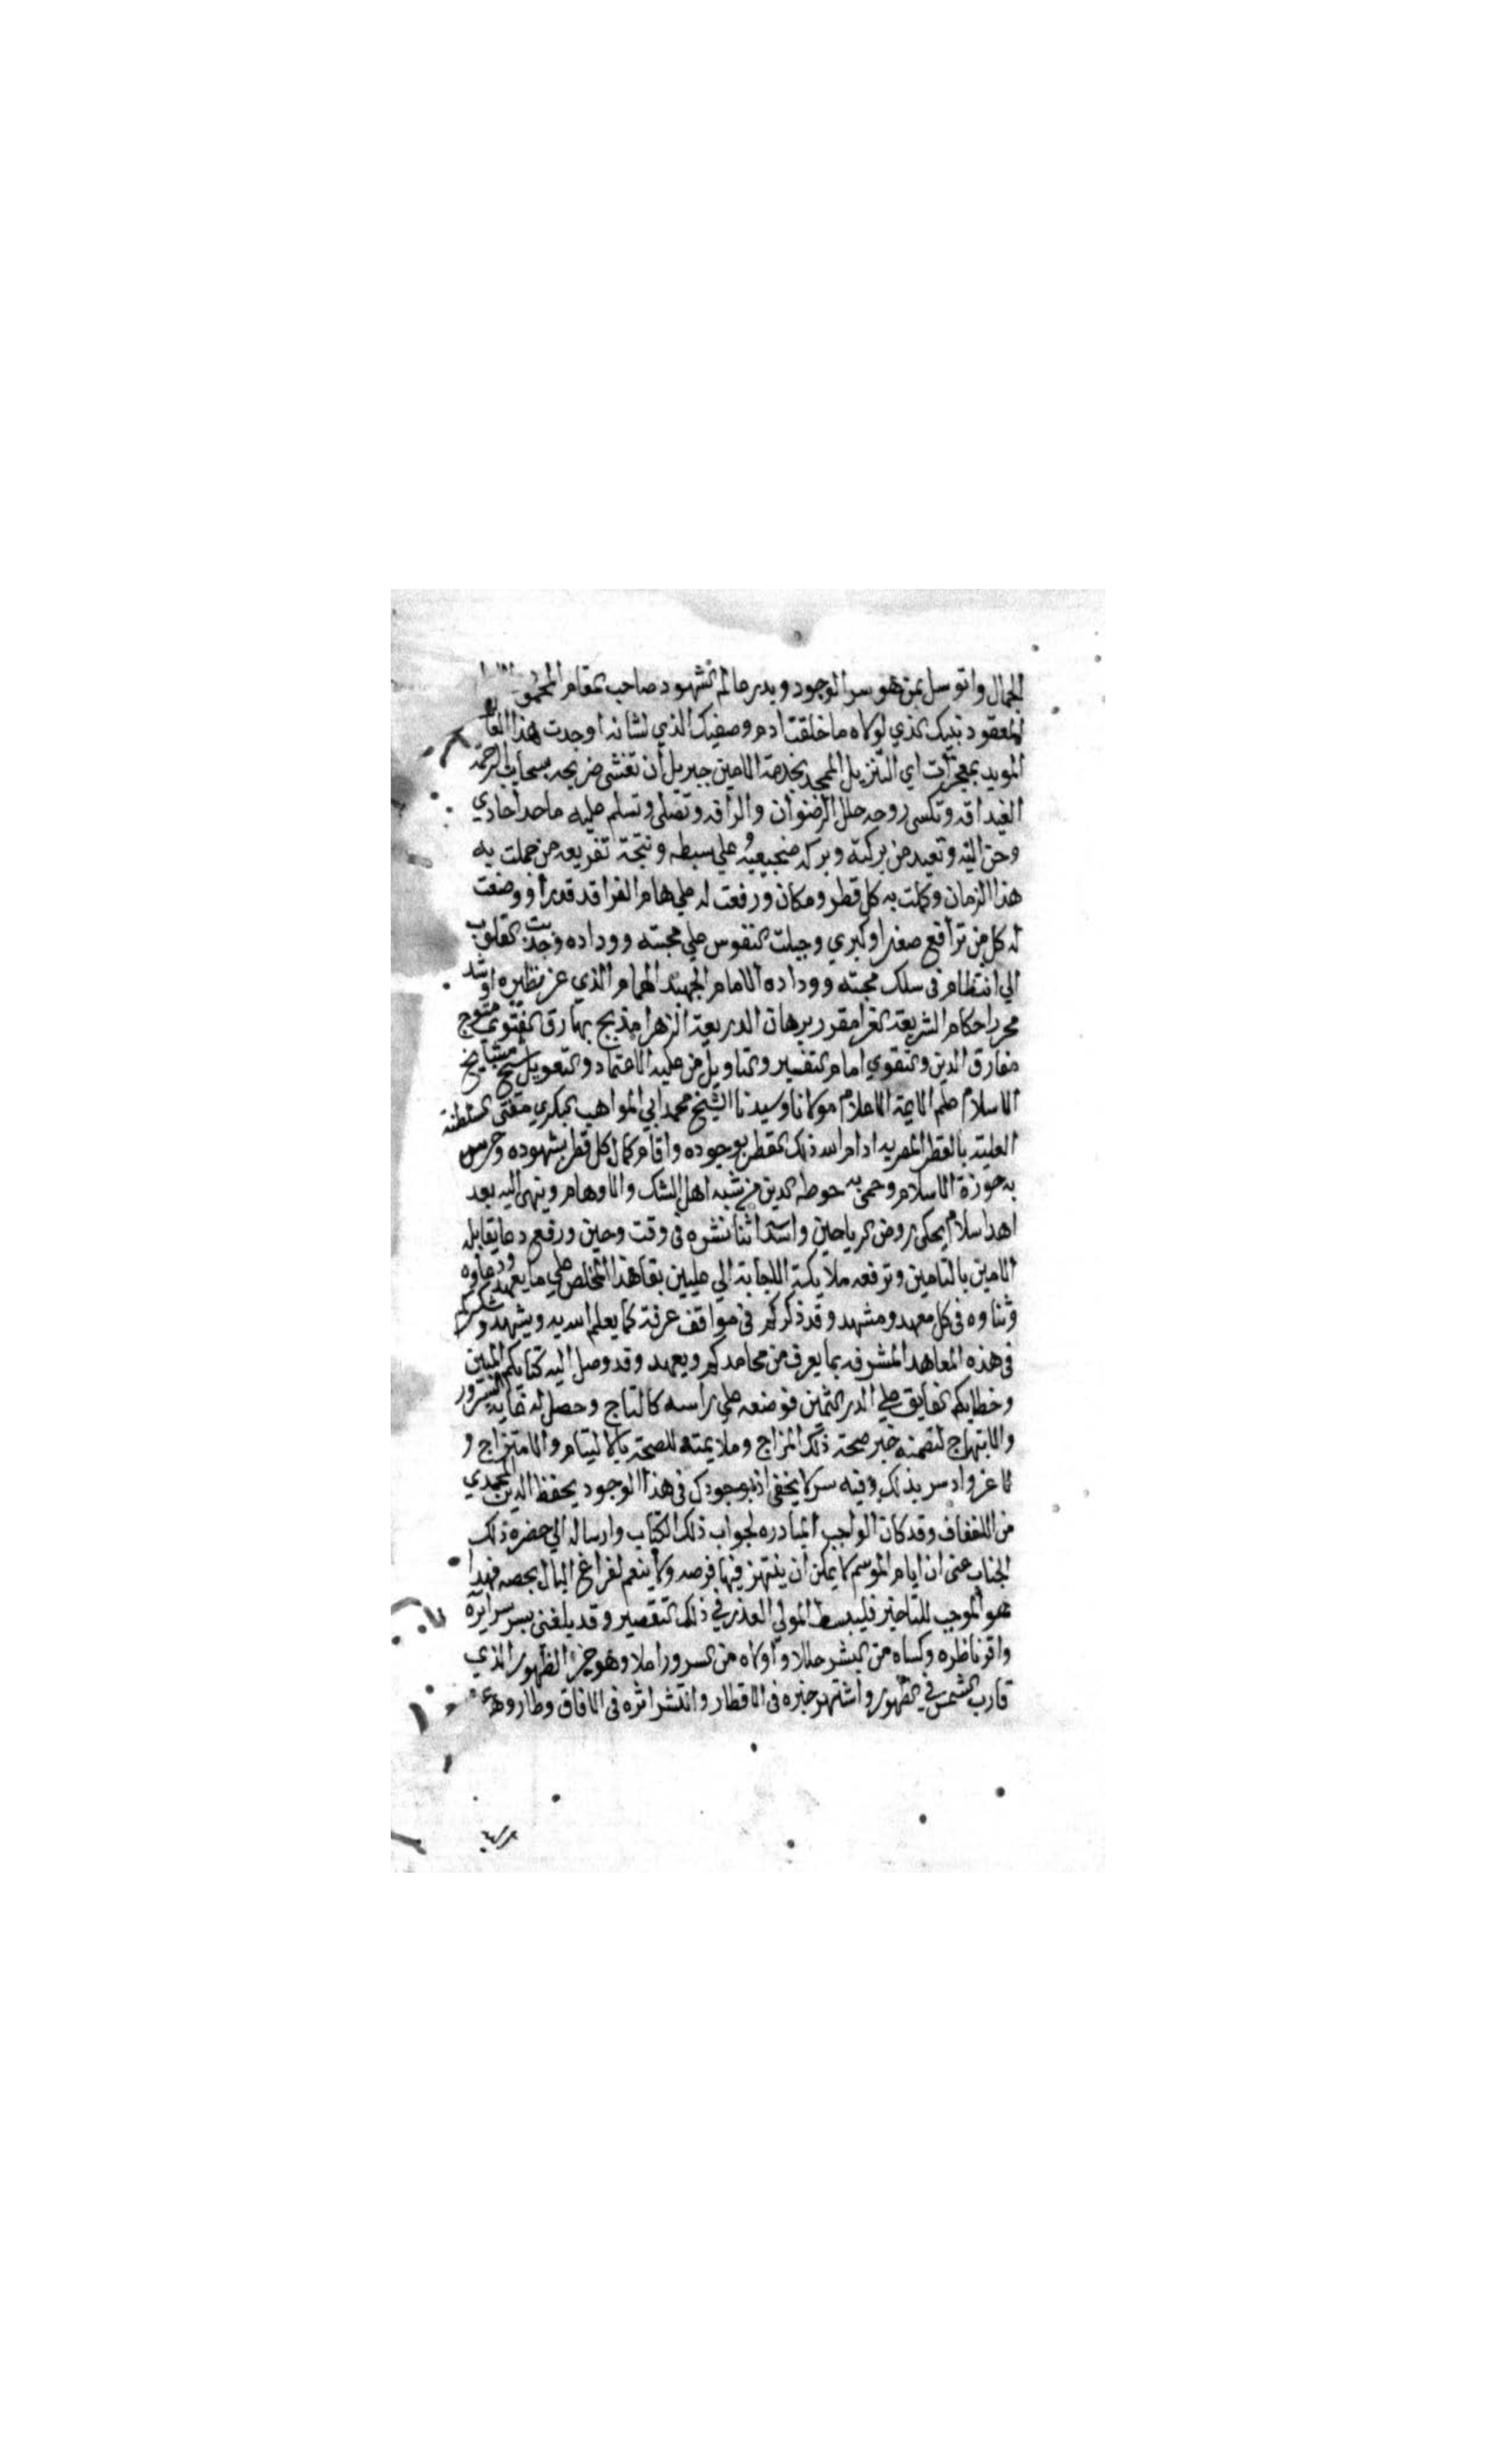 الجمال واتوسل بمن هو سر الوجود وبدر عالم الشهود صاحب المقام المحمود
المعقود بنيك الذي لولاه ما خلقت ادم وصفيك الذي لشانه اوجدت هذا العا
المويد بمعجزات اي التنزيل الممجد بخدمة الامين جبريل ان تغشى ضريحه بسحايب الرحمة
الغيداقه وتكسى روحه حلل الرضوان والرافه وتصلى وتسلم عليه ما حدا حادي
وحن اليه وتعيد من بركته وبركة ضجيعيه علي سبطه ونتجة تفريعه من جملت به
هذا الزمان وكملت به كل قطر ومكان ورفعت له علي هام الفراقد قدرا ووضعت
له كل من ترافع صغرا وكبري وجبلت النفوس علي محبته ووداده وجذبت القلوب
الي انتظام في سلك محبته ووداده الامام الجهبذ الهمام الذي عز نظيره
محرر احكام الشريعة الغرا مقرر برهان الدريعة الزهرا مدبج مهارق الفتوي متوج
مفارق الدين والتقوي امام التفسير والتاويل من عليه الاعتماد والتعويل شيخ مشايخ
الاسلام علم الايمة الاعلام مولانا وسيدنا الشيخ محمد ابي المواهب البكري مفتى السلطنة
العلية بالقطر المصريه ادام الله ذلك القطر بوجوده واقام كمال كل قطر بشهوده وحرس
به حوزة الاسلام وحمى به حوطه الدين من شبه اهل الشك والاوهام وينهى اليه بعد
اهدا سلام يحكى روض الرياحين واسدا ثنا نشره فى وقت وحين ورفع دعا يقابله
الامين بالتامين وترفعه ملايكة الاجابة الي عليين بقا هذا المخلص علي ما يعهد ودعاوه
وثناوه فى كل معهد ومشهد وقد ذكركم فى مواقف عرفة كما يعلم الله به ويشهد وشكركم
فى هذه المعاهد المشرفه بما يعرف من محامدكم ويعهد وقد وصل اليه كتابكم المبين
وخطابكم الفايق علي الدر الثمين فوضعه علي راسه كالتاج وحصل له غاية السرور
والابتهاج لتضمنه خبر صحة ذلك المزاج وملايمته للصحة بالاليتام والامتزاج و
لا غرو اذ سر بذلك وفيه سر لا يخفى اذ بوجودك فى هذا الوجود يحفظ الدين المحمدي
من وقد كان الواجب المبادره لجواب ذلك الكتاب وارساله الي حضره ذلك
الجناب عنى ان ايام الموسم لا يمكن ان ينتهز فيها فرصه ولا ينعم لفراغ البال بحصه فهدا
هو الموجب للتاخير فليبسط المولي العذر في ذلك التقصير وقد بلغنى بسر سرايره
واقر ناظره وكساه من البشر حللا واولاه من السرور املا وهو خبر الظهور الذي
قارب الشمس في الظهور واشتهر خبره فى الاقطار وانتشر اثره فى الافاق وطار وهو